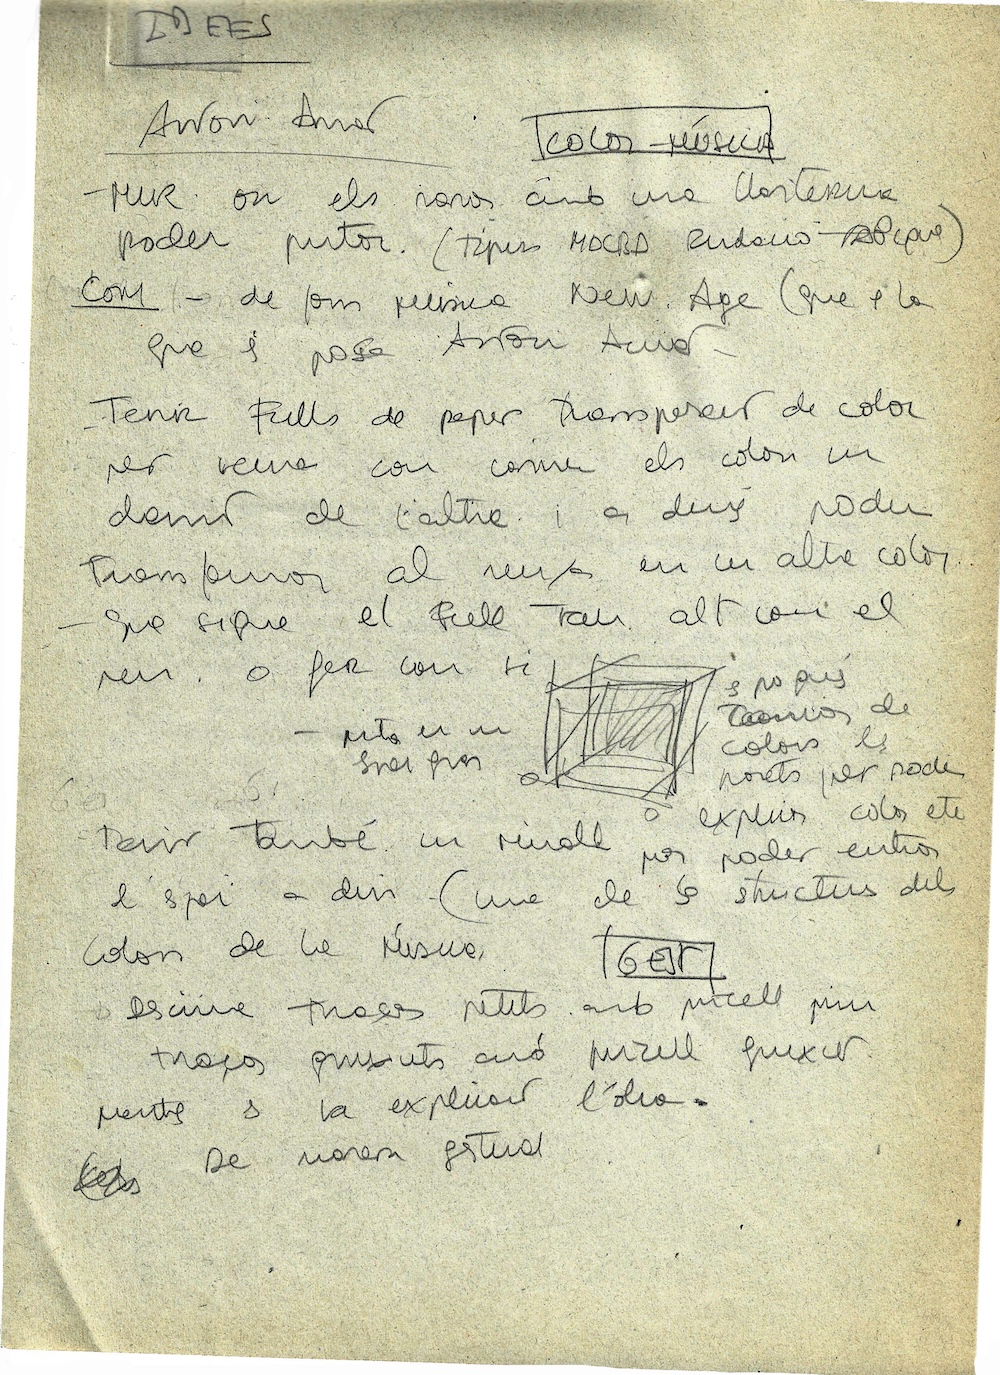 IDEES
Antoni Amat
COLOR-MÚSICA
- MUR on els nanos amb una llanterna
poder pintar. (tipus MACBA
COM - de fons música New Age (que és la
que es posa Antoni Amat
- Tenir Fulls de paper transparent de color
per veure com canvia els colors un
damunt de l'altre i a demés poder
transformar al nen en un altre color.
- que sigui el Full tan alt com el
nen. o fer com si
- pinta en un
espai gran
de
colors
per poder
o explicar color etc
Tenir també un mirall per poder entrar
l'espai a dins (una de estructura dels
colors de la Música.
GEST
traços petits amb pinzell prim
traços gruixuts amb pinzell gruixut
mentre es va explicant l'obra.
De manera gestual